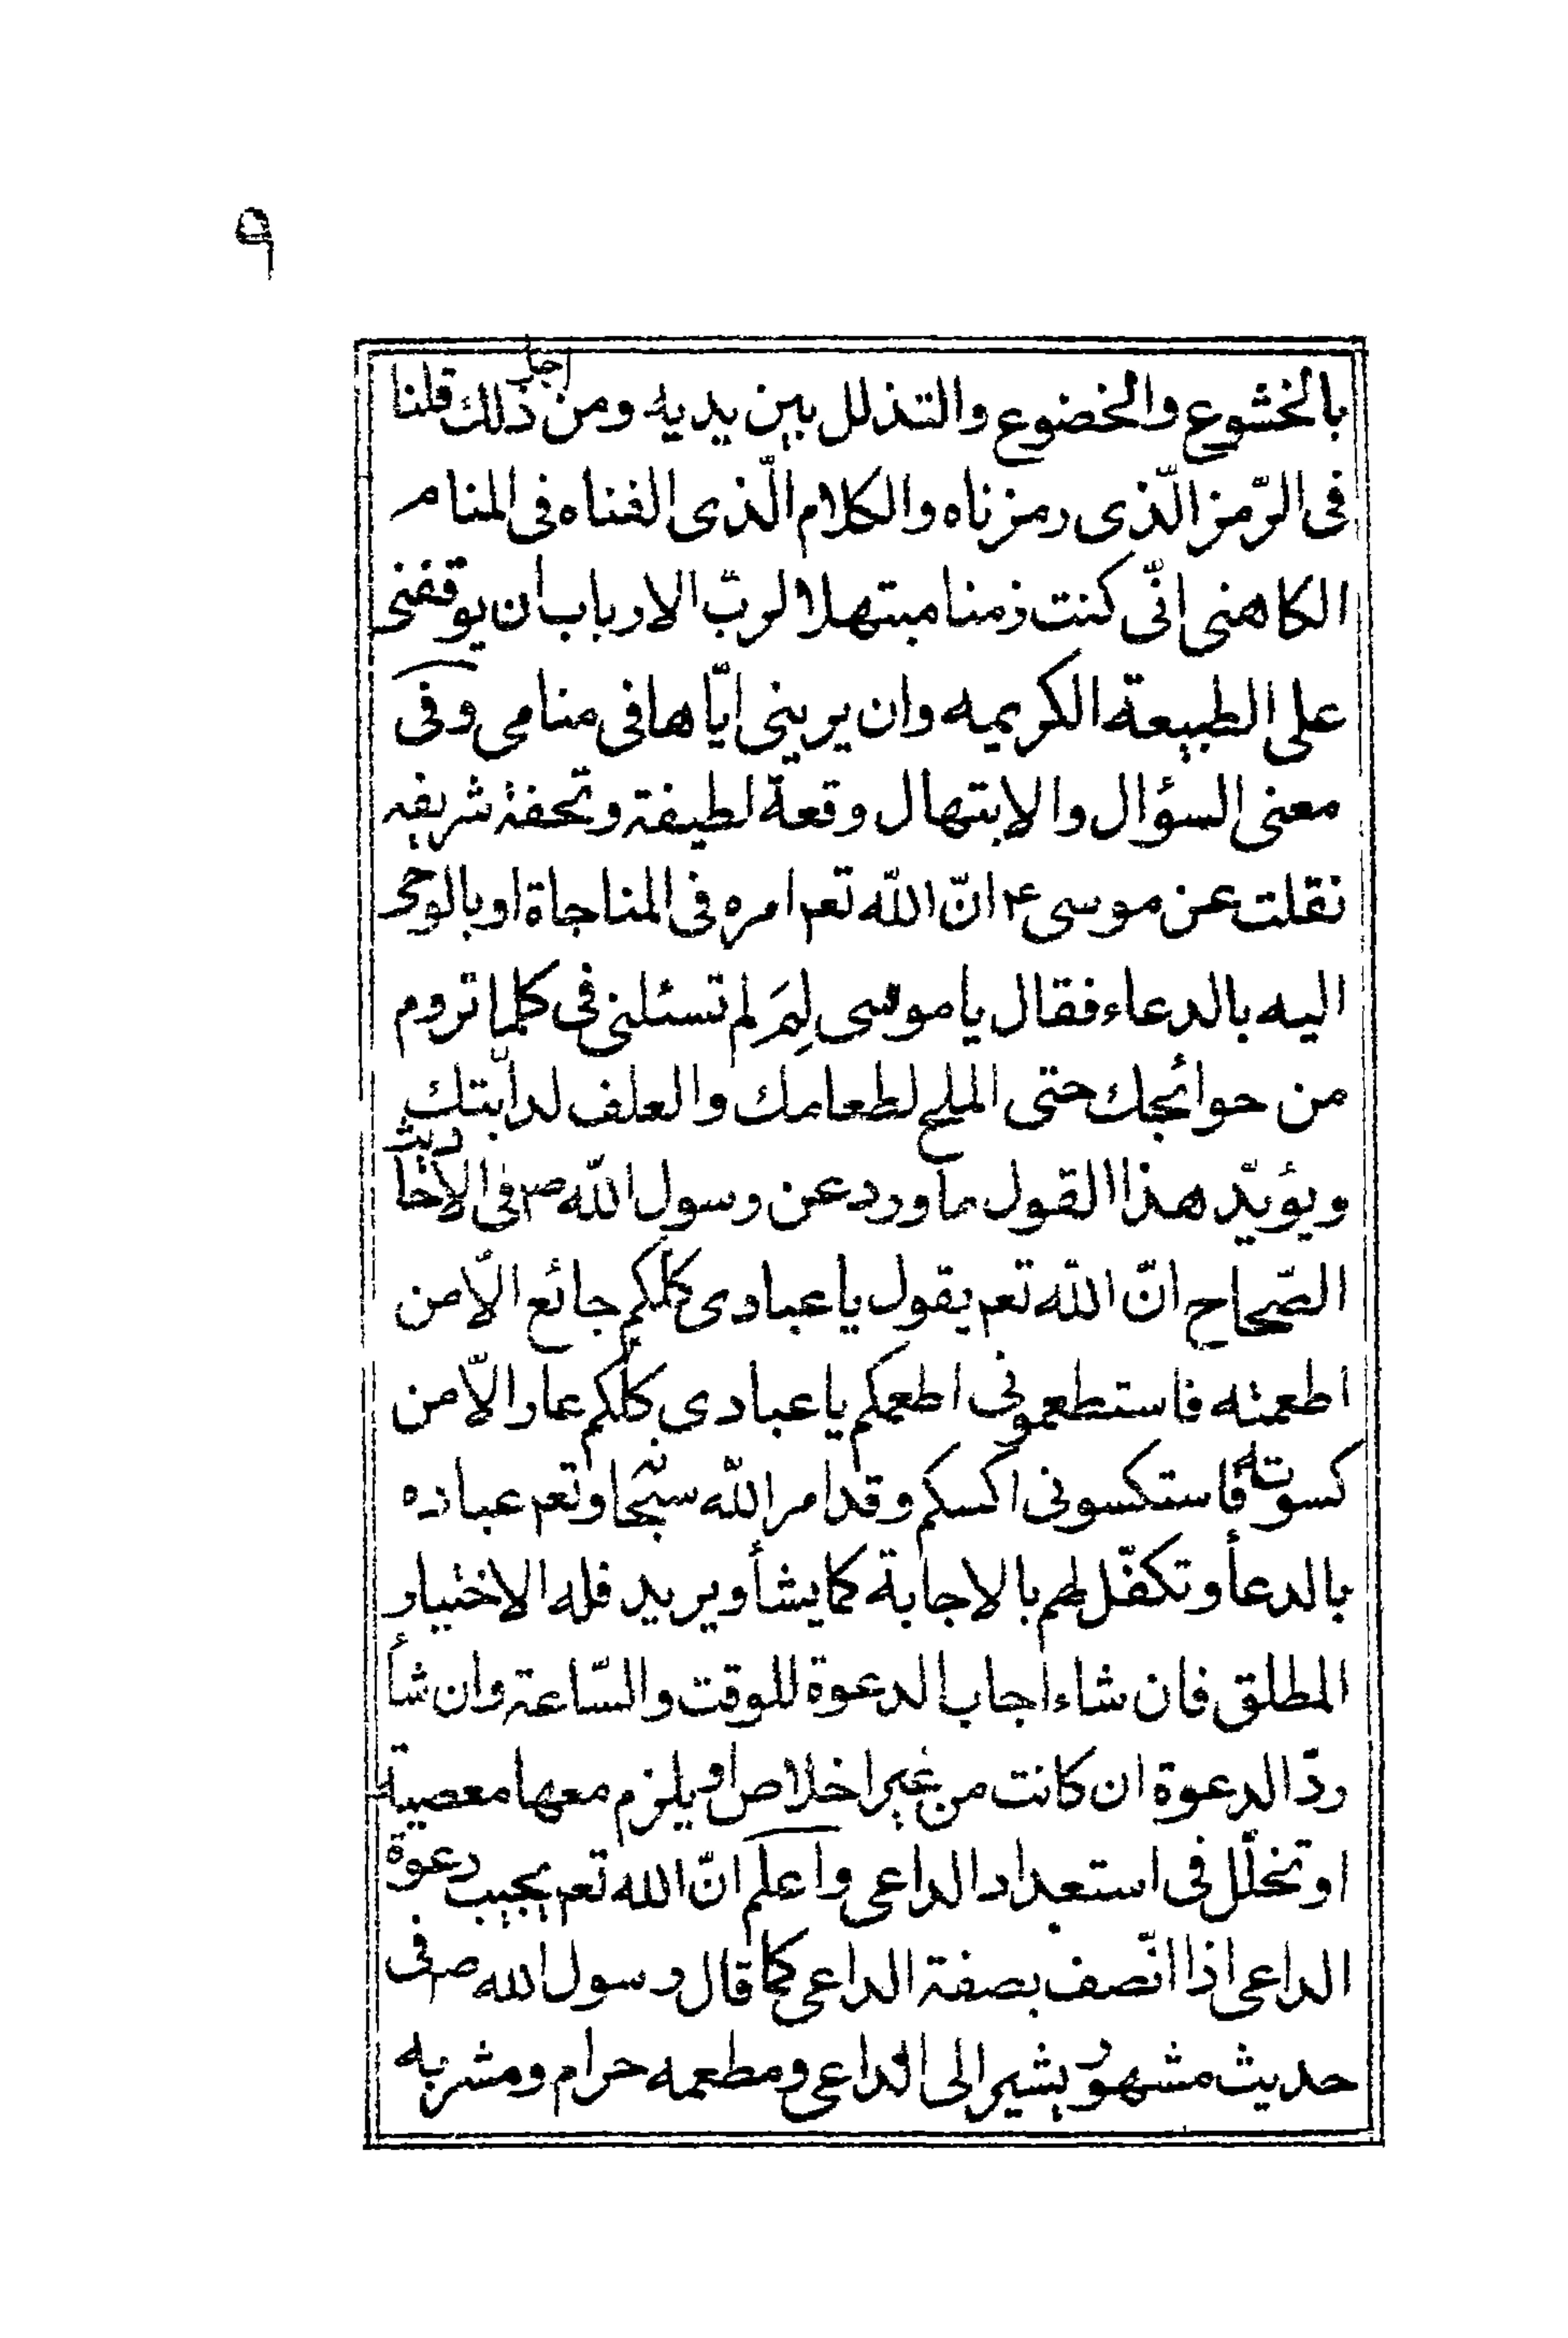 ٩
بالخشوع والخضوع والتذلل بين يديه ومن اجل ذلك قلنا
فى الرّمز الّذى رمزناه والكلام الّذى الفناه فى المنام
الكاهنى انّى كنت زمنا مبتهلا لربّ الارباب ان يوقفنى
على الطبيعة الكريمه وان يرينى ايّاها فى منامى وفى
معنى السؤال والابتهال وقعة لطيفة وتحفة شريفه
نقلت عن موسى ع انّ اللّه تعم امره فى المناجاة او بالوحى
اليه بالدعاء فقال يا موسى لِمَ لم تسئلنى فى كلما تروم
من حوائجك حتى الملح لطعامك والعلف لدابّتك
ويؤيّد هذا القول ما ورد عن رسول اللّه ص فى الاحاديث
الصّحاح انّ اللّه تعم يقول يا عبادى كلّكم جائع الّا من
اطعمته فاستطعمونى اطعمكم يا عبادى كلّكم عار الّا من
كسوته فاستكسونى اكسكم وقد امر اللّه سبحانه وتعم عباده
بالدعأ وتكفّل لهم بالاجابة كما يشأ ويريد فله الاختيار
المطلق فان شاء اجاب الدعوة للوقت والسّاعة وان شأ
ردّ الدعوة ان كانت من غير اخلاص او يلزم معها معصية
او تخلّل فى استعداد الداعى واعلم انّ اللّه تعم يجيب دعوة
الداعى اذا اتّصف بصفة الداعى كما قال رسول اللّه ص فى
حديث مشهور يشير الى الداعى ومطعمه حرام ومشربه